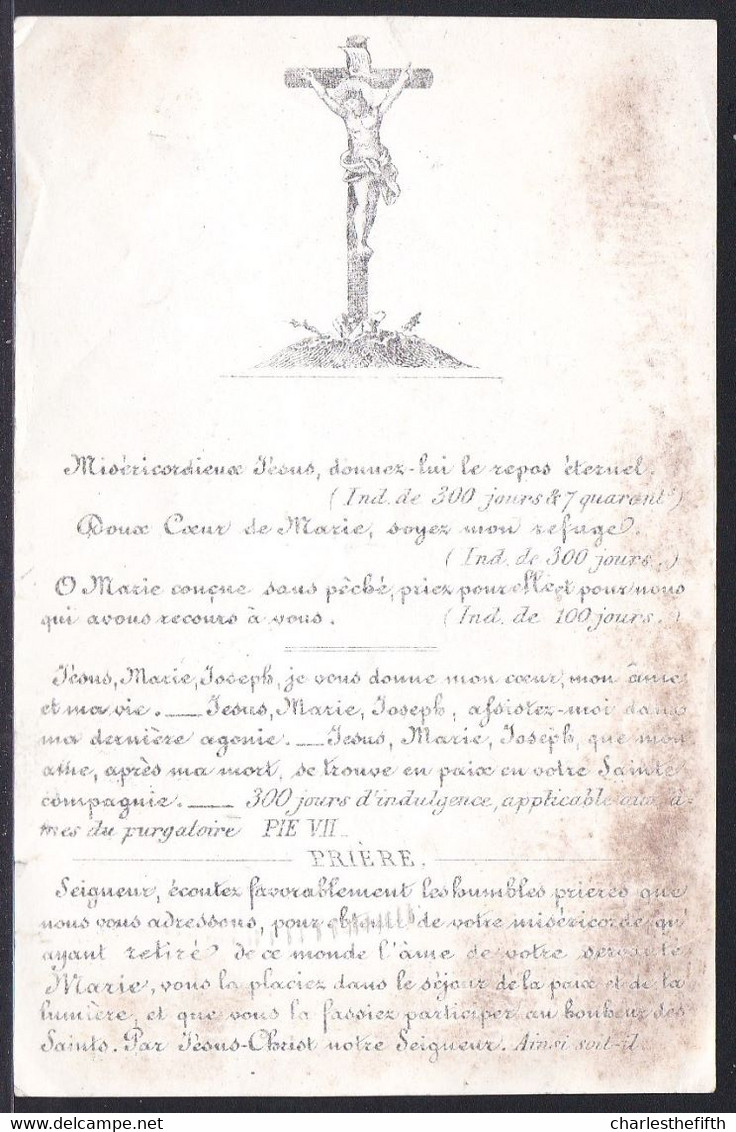 Miséricordieux Jésus, donnez-lui le repos éternel.
(Ind. de 300 jours & 7 quarant.)
Doux Cœur de Marie, soyez mon refuge.
(Ind. de 300 jours.)
O Marie conçue sans pêché, priez pour elle et pour nous
qui avons recours à vous. (Ind. de 100 jours.)
Jésus, Marie, Joseph, je vous donne mon cœur, mon âme
et ma vie. — Jesus, Marie, Joseph, assistez-moi dans
ma dernière agonie. — Jesus, Marie, Joseph, que mon
ame, après ma mort, se trouve en paix en votre Sainte
compagnie. — 300 jours d'indulgence, applicable aux â-
mes du purgatoire PIE VII.
PRIÈRE.
Seigneur, écoutez favorablement les humbles prières que
nous vous adressons, pour obtenir de votre miséricorde, qu'
ayant retiré de ce monde l'âme de votre servante
Marie, vous la placiez dans le séjour de la paix et de la
lumière, et que vous la fassiez participer au bonheur des
Saints. Par Jésus-Christ notre Seigneur. Ainsi soit-il.
charlesthefifth